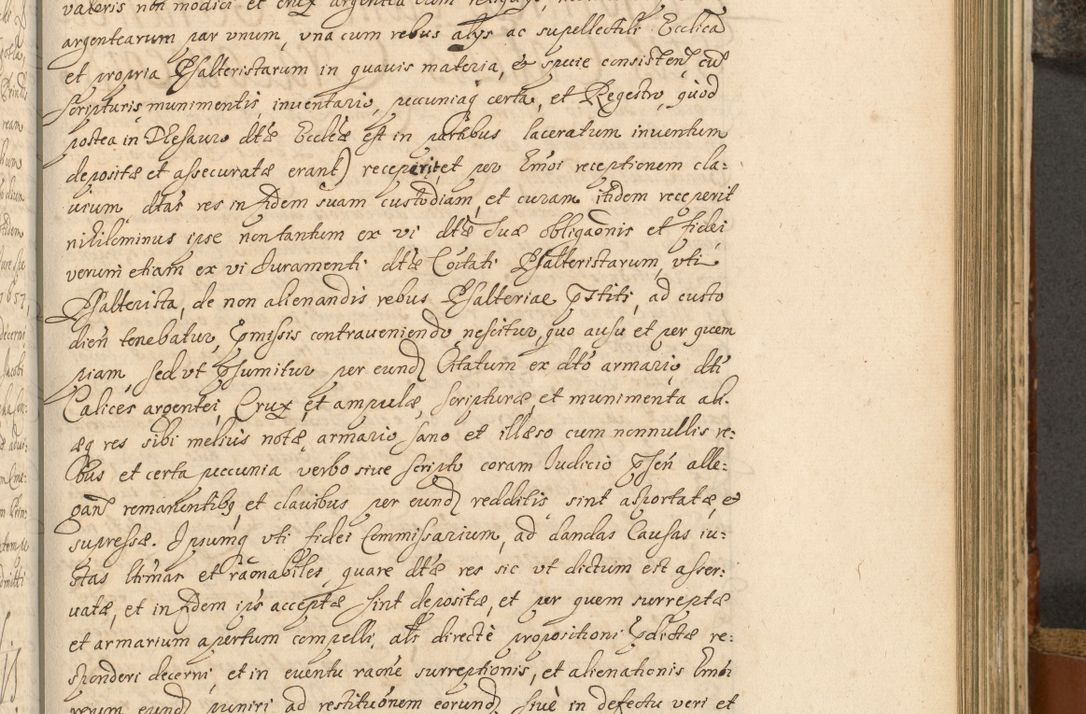 valeris non modici et crux argentea cum
argentearum par vnum, vna cum rebus alijs ac supellectili Ecclĩca
et propria Psalteristarum in quauis materia, & specie consisteñ cũ
scripturis munimentis inuentario, pecuniaq certa, et Regestro, quod
postea in Thesauro dtæ Ecclĩæ est in partibus laceratum inuentum
depositæ et assecuratæ erant) receperit, et per huĩoi receptionem cla-
uium dtas res in fidem suam custodiam, et curam itidem receperit
nihilominus ipse non tantum ex vi dtæ suæ obligaõnis et fidei
verum etiam ex vi Juramenti dtæ Coĩtati Psalteristarum, vti
Psalterista, de non alienandis rebus Psalteriae pstiti, ad custo
dieñ tenebatur, Pmissis contraueniendo, nescitur, quo ausu et per quem
piam, sed vt psumitur per eund Citatum ex dto armario, dti
Calices argentei, Crux et ampulæ, scripturæ, et munimenta ali-
æq res sibi melius notæ, armario sano et illæso cum nonnullis re-
bus et certa pecunia verbo siue scripto coram Judicio pseñ alle-
gañ remanentibq, et clauibus per eund redditis, sint asportatæ, et
supressæ. Ipsumq vti fidei Commissarium, ad dandas Causas iu-
stas ltimas et raõnabiles, quare dtæ res sic vt dictum est asser-
uatæ, et in fidem ips acceptæ sint depositæ, et per quem surreptæ
et armarium apertum compelli, als directè propositioni pdictæ re-
sponderi decerni, et in euentu raõne surreptionis, et alienationis huĩoi
rerum eund puniri ad restitutionem eorund siue in defectu veri et